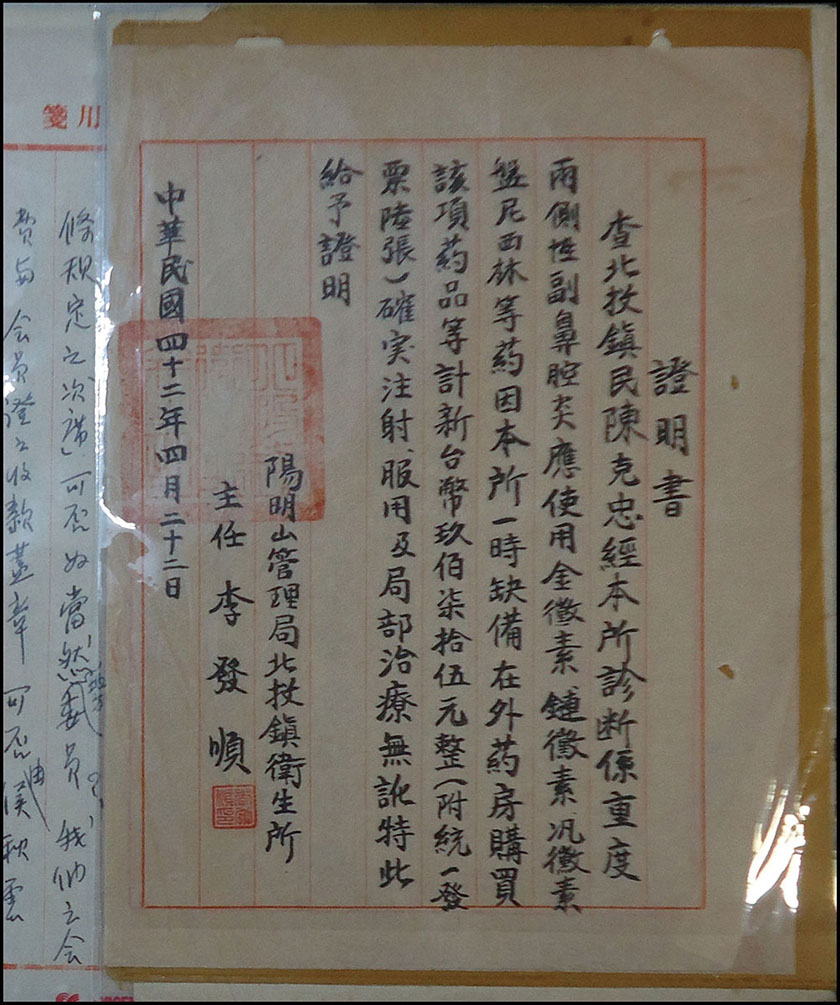 證明書
查北投鎮民陳克忠經本所診断係重度
兩側性副鼻腔炎應使用金黴素、鏈黴素、汎黴素
盤尼西林等葯因本所一時缺備在外葯房購買
該項葯品等計新台幣玖佰柒拾伍元整(附統一發
票陸張)確実注射、服用及局部治療無訛特此
給予證明
陽明山管理局北投鎮衛生所
主任 李發順
中華民國四十二年四月二十二日
用箋
條規定之次席」可否如當然委員 我們立会
費與会員證之收款蓋章 可否由